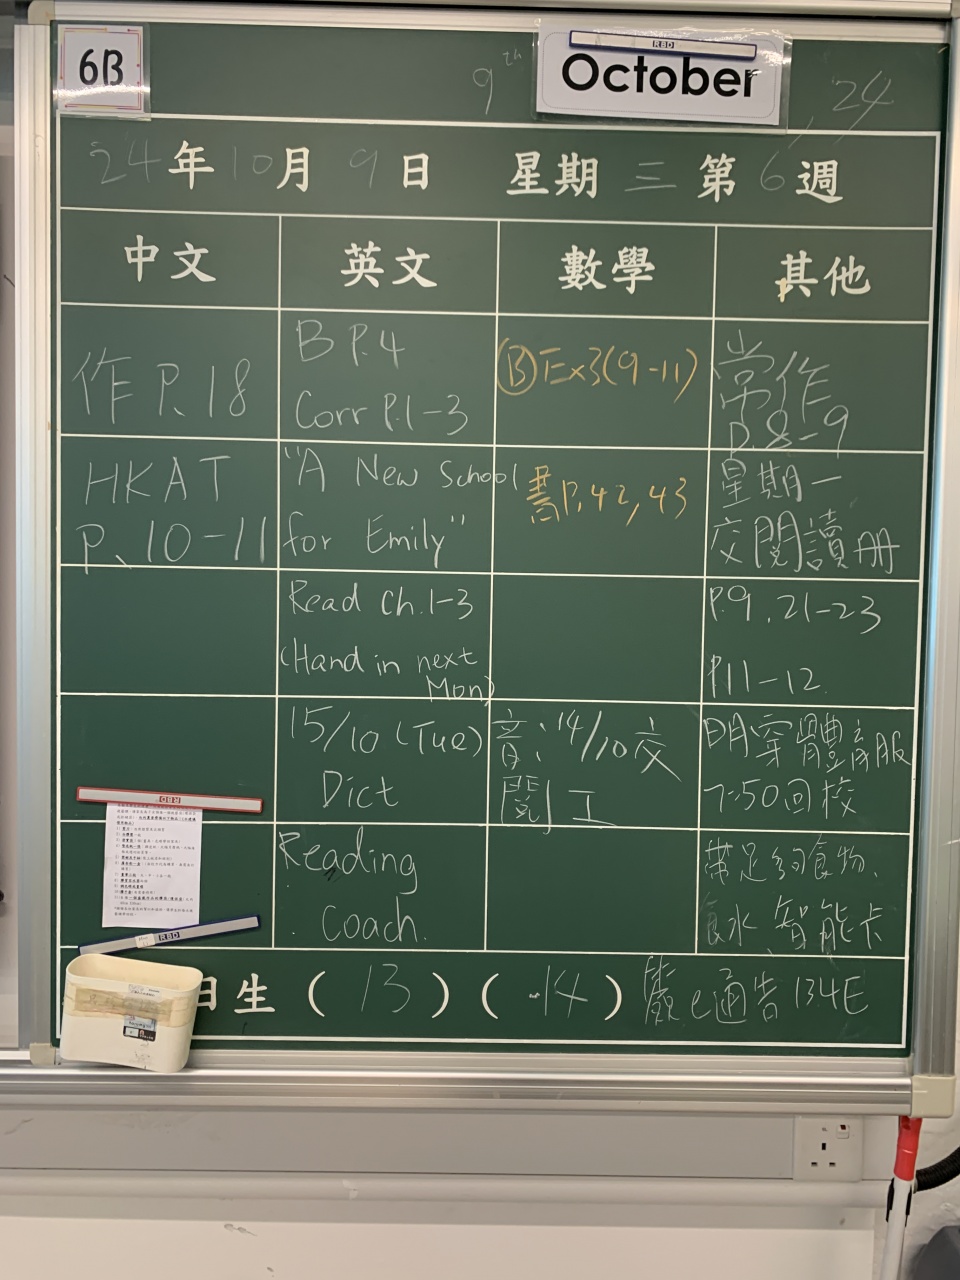 6B
9th October, 24
24年10月9日 星期三 第6週
中文
英文
數學
其他
作 P.18
B P.4
Corr P.1-3
Ⓑ Ex3(9-11)
常作
P.8-9
HKAT
P.10-11
"A New School
for Emily"
書P.42,43
星期一
交閱讀册
Read Ch.1-3
(Hand in next
Mon)
P.9, 21-23
P.11-12
15/10 (Tue)
Dict
音:14/10交
閱工
明穿體育服
7:50回校
Reading
Coach.
帶足夠食物、
食水、智能卡
日生 ( 13 ) ( 14 )
簽e通告134E
RBD
RBD
RBD